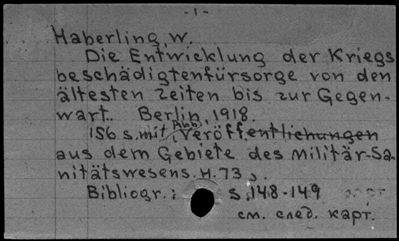 -1-
Haberling, W.
Die Entwicklung der Kriegs
beschädigtenfürsorge von den
ältesten Zeiten bis zur Gegen-
wart. Berlin, 1918.
156 s. mit Abb. (Veröffentlichungen
aus dem Gebiete des Militär-Sa-
nitätswesens. H. 73).
Bibliogr.: s. 148-149
см. след. карт.